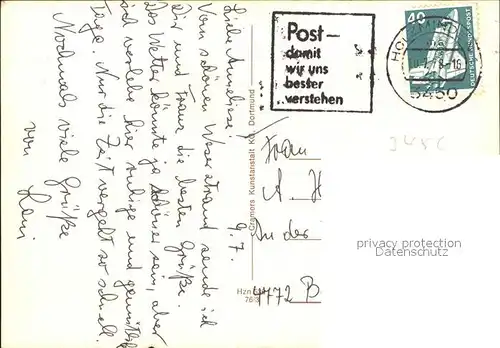 9. 7.
Liebe Anneliese!
Vom schönen Weserstrand sende ich
Dir und Franz die besten Grüße.
Das Wetter könnte ja schöner sein, aber
ich verlebe hier ruhige und gemütliche
Tage. Nur die Zeit vergeht so schnell.
Nochmals viele Grüße
von
Cramers Kunstanstalt KG, Dortmund
Hzn
76/3
Post–
damit
wir uns
besser
verstehen
HOLZM
-16
3450
40
DEUTSCHE BUNDESPOST
345C
Frau
A. H
An der
4772 B
privacy protection
Datenschutz